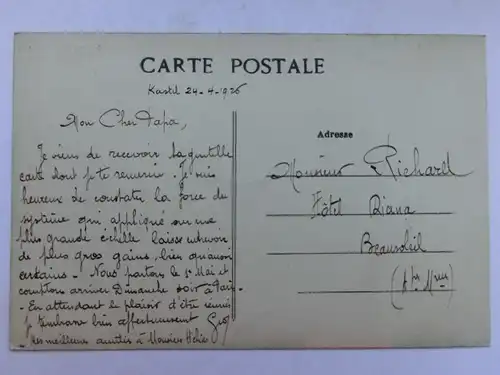 CARTE POSTALE
Kastel 24-4-1926
Mon Cher Papa,
Je viens de recevoir ta gentille
carte dont je te remercie. Je suis
heureux de constater la force du
système qui appliqué sur une
plus grande échelle laisse entrevoir
de plus gros gains, bien que non
certains - Nous partons le 1er Mai et
comptons arriver Dimanche soir à Paris
- En attendant le plaisir d'être réunis
je t'embrasse bien affectueusement
Mes meilleures amitiés à Monsieur
Adresse
Monsieur Richard
Hôtel Diana
Beausoleil
(Alpes Mmes)